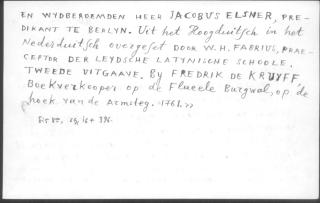 EN WYDBEROEMDEN HEER JACOBUS ELSNER, PRE-
DIKANT TE BERLYN. Uit het Hoogduitsch in het
Nederduitsch overgeset DOOR W.H. FABRIUS, PRAE-
CEPTOR DER LEYDSCHE LATYNISCHE SCHOOLE.
TWEEDE UITGAAVE. By FREDRIK DE KRUYFF
Boekverkooper op de Flueele Burgwal, op de
hoek van de Armsteg. 1761.»